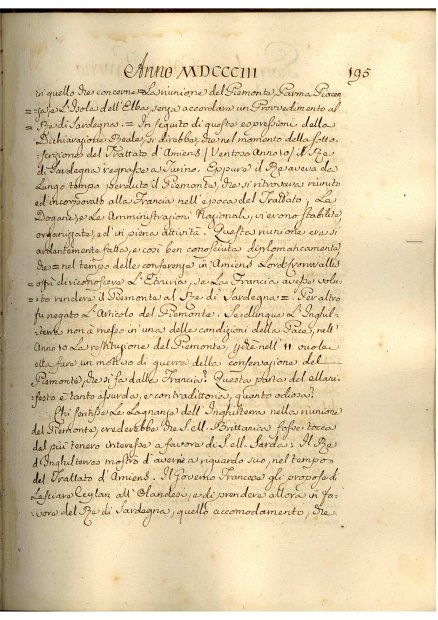 Anno MDCCCIII 195
in quello che concerne = La riunione del Piemonte, Parma Piacen-
za, e L'Isola dell'Elba, senza accordare un Provvedimento al
Re di Sardegna. = In seguito di queste espressioni della
Dichiarazione Reale, si direbbe, che nel momento della sotto-
scrizione del Trattato d'Amiens / Ventoso Anno 10 / il Re
di Sardegna regnasse a Turino. Eppure il Re aveva da
Lungo tempo perduto il Piemonte, che si ritrovava riunito
ed incorporato alla Francia nell'epoca del Trattato, Le
Dogane, e Le Amministrazioni Nazionali, vi erono stabilite,
organizzate, ed in piena attività. Questa riunione era sì
ardentemente fatta, e così ben conosciuta diplomaticamente
che = nel tempo delle conferenze in Amiens Lord
offrì di riconoscere L'Etruria, se La Francia avesse volu-
to rendere il Piemonte al Re di Sardegna = Per altro
fu negato L'Articolo del Piemonte. Se dunque L'Inghil-
terra non à messo in una delle condizioni della Pace, nell'
Anno 10 La restituzione del Piemonte, perchè nell' 11 vuole
ella fare un motivo di guerra della conservazione del
Piemonte, che si fa dalla Francia? Questa parte del
festo è tanto assurda, e contradittoria, quanto odiosa?
Chi sentisse Le Lagnanze dell'Inghilterra nella riunione
del Piemonte, crederebbe che S. M. Brittanica fosse tocca
del più tenero interesse a favore di S. M. Sarda. Il Re
d'Inghilterra mostrò d'averne a riguardo suo, nel tempo
del Trattato d'Amiens. Il Governo Francese gli propose di
Lasciare Ceylan all'Olandesi, e di prendere allora in fa-
vore del Re di Sardegna, quello accomodamento, che